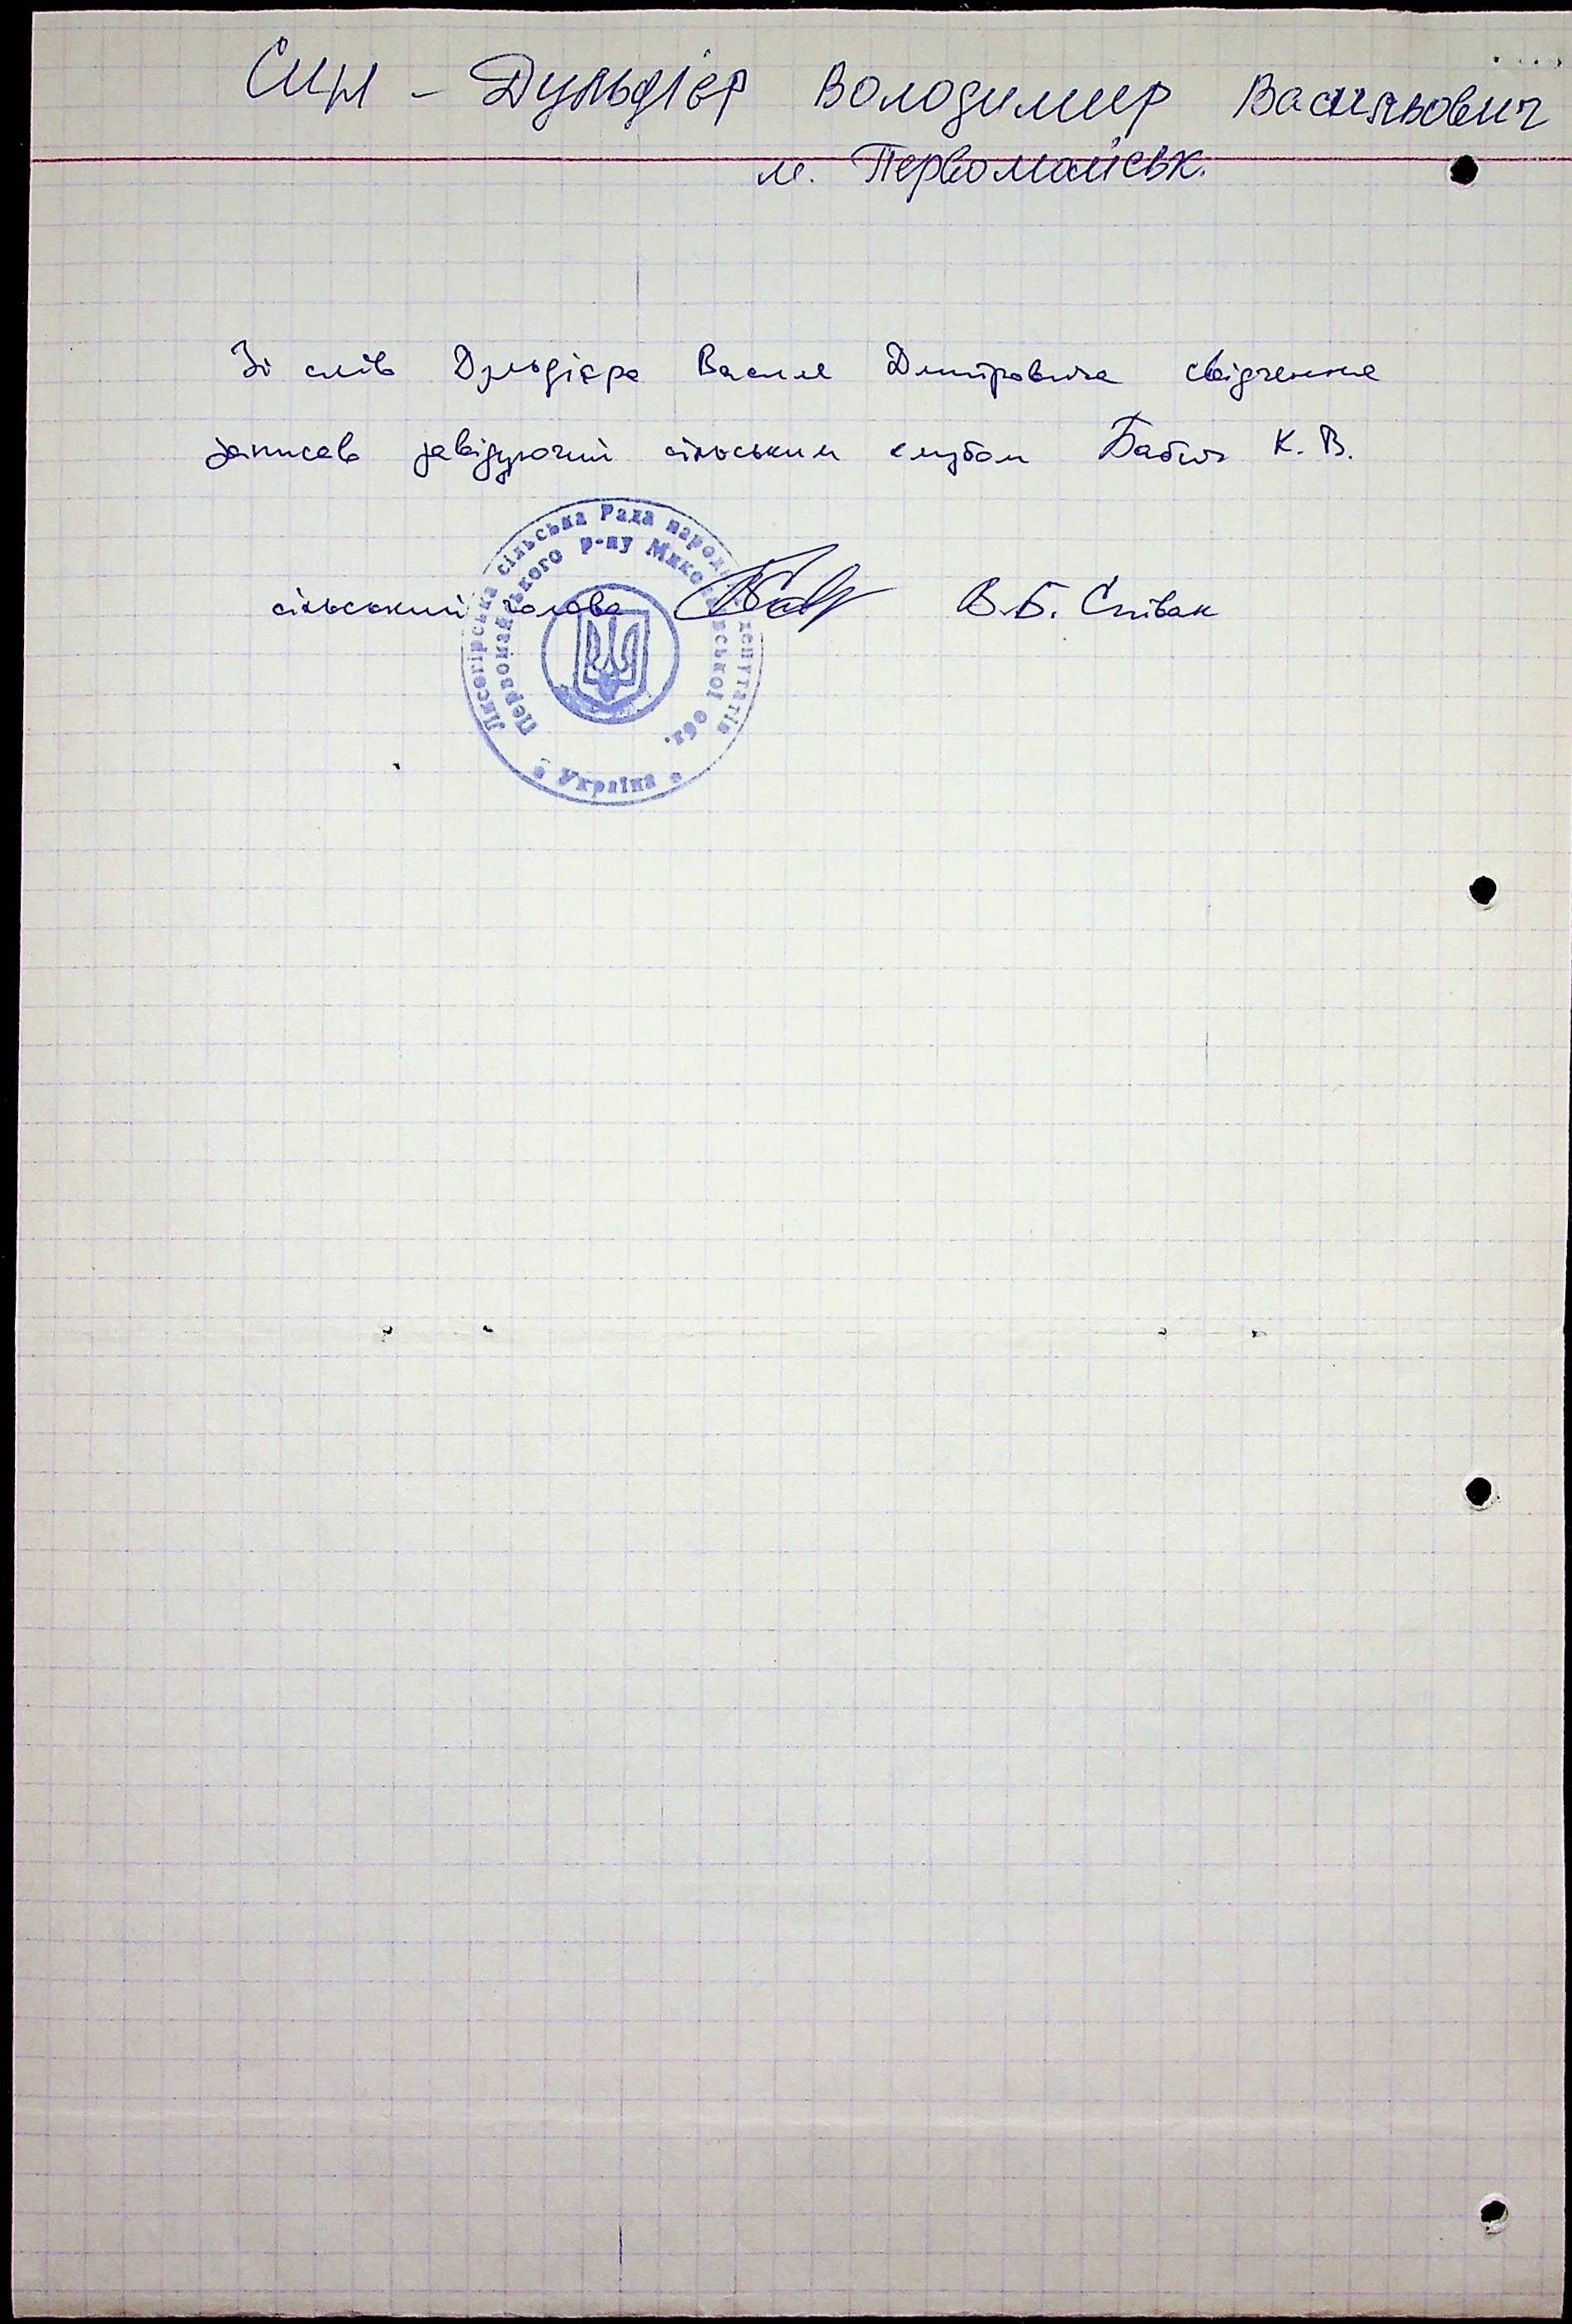 Син - Дульдієр Володимир Васильович
м. Первомайськ.
Зі слів Дульдієра Василя Дмитровича свідчення
записав завідуючий сільським клубом Бабич К. В.
сільський голова В.Б. Співак
Лисогірська сільська Рада народних депутатів
Первомайського р-ну Миколаївської обл.
Україна